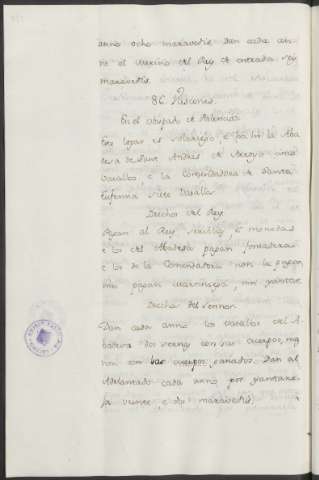 anno ocho maravedis. Dan cada an-
no el merino del Rey de entrada seis
maravedis.
86. Pascones.
En el obispado de Palencia.
Este logar es solariego, e ha en la Aba
desa de Sant Andres de Arroyo cinco
Vasallos e la Comendadora de Santa
Eufemia siete Vasallos.
Derechos del Rey.
Pagan al Rey servicios, e monedas
e los del Abadesa pagan fonsadera
e los de la Comendadora non la pagan
nin pagan martiniega, nin yantar
Derechos del Sennor.
Dan cada anno los vasallos del A-
badesa dos sernas con sus cuerpos, ma
non con sus ganados. Dan al
Adelantado cada anno por yantare
ja veinte, e dos maravedis.